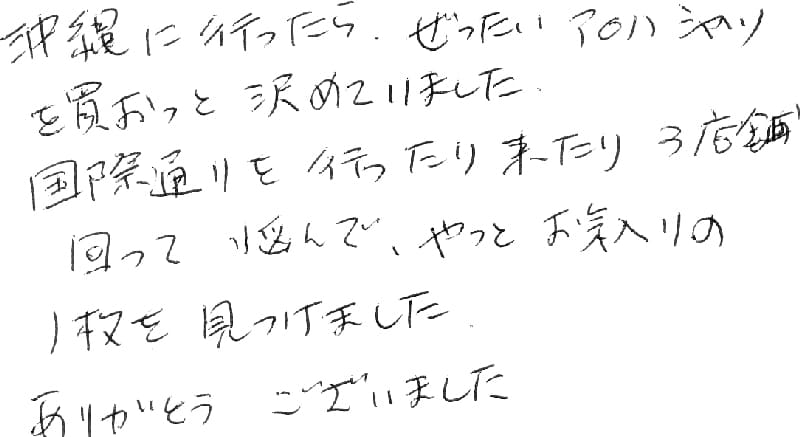 沖縄に行ったら、ぜったいアロハシャツ
を買おっと決めていました。
国際通りを行ったり来たり3店舗
回って悩んで、やっとお気入りの
1枚を見つけました。
ありがとうございました